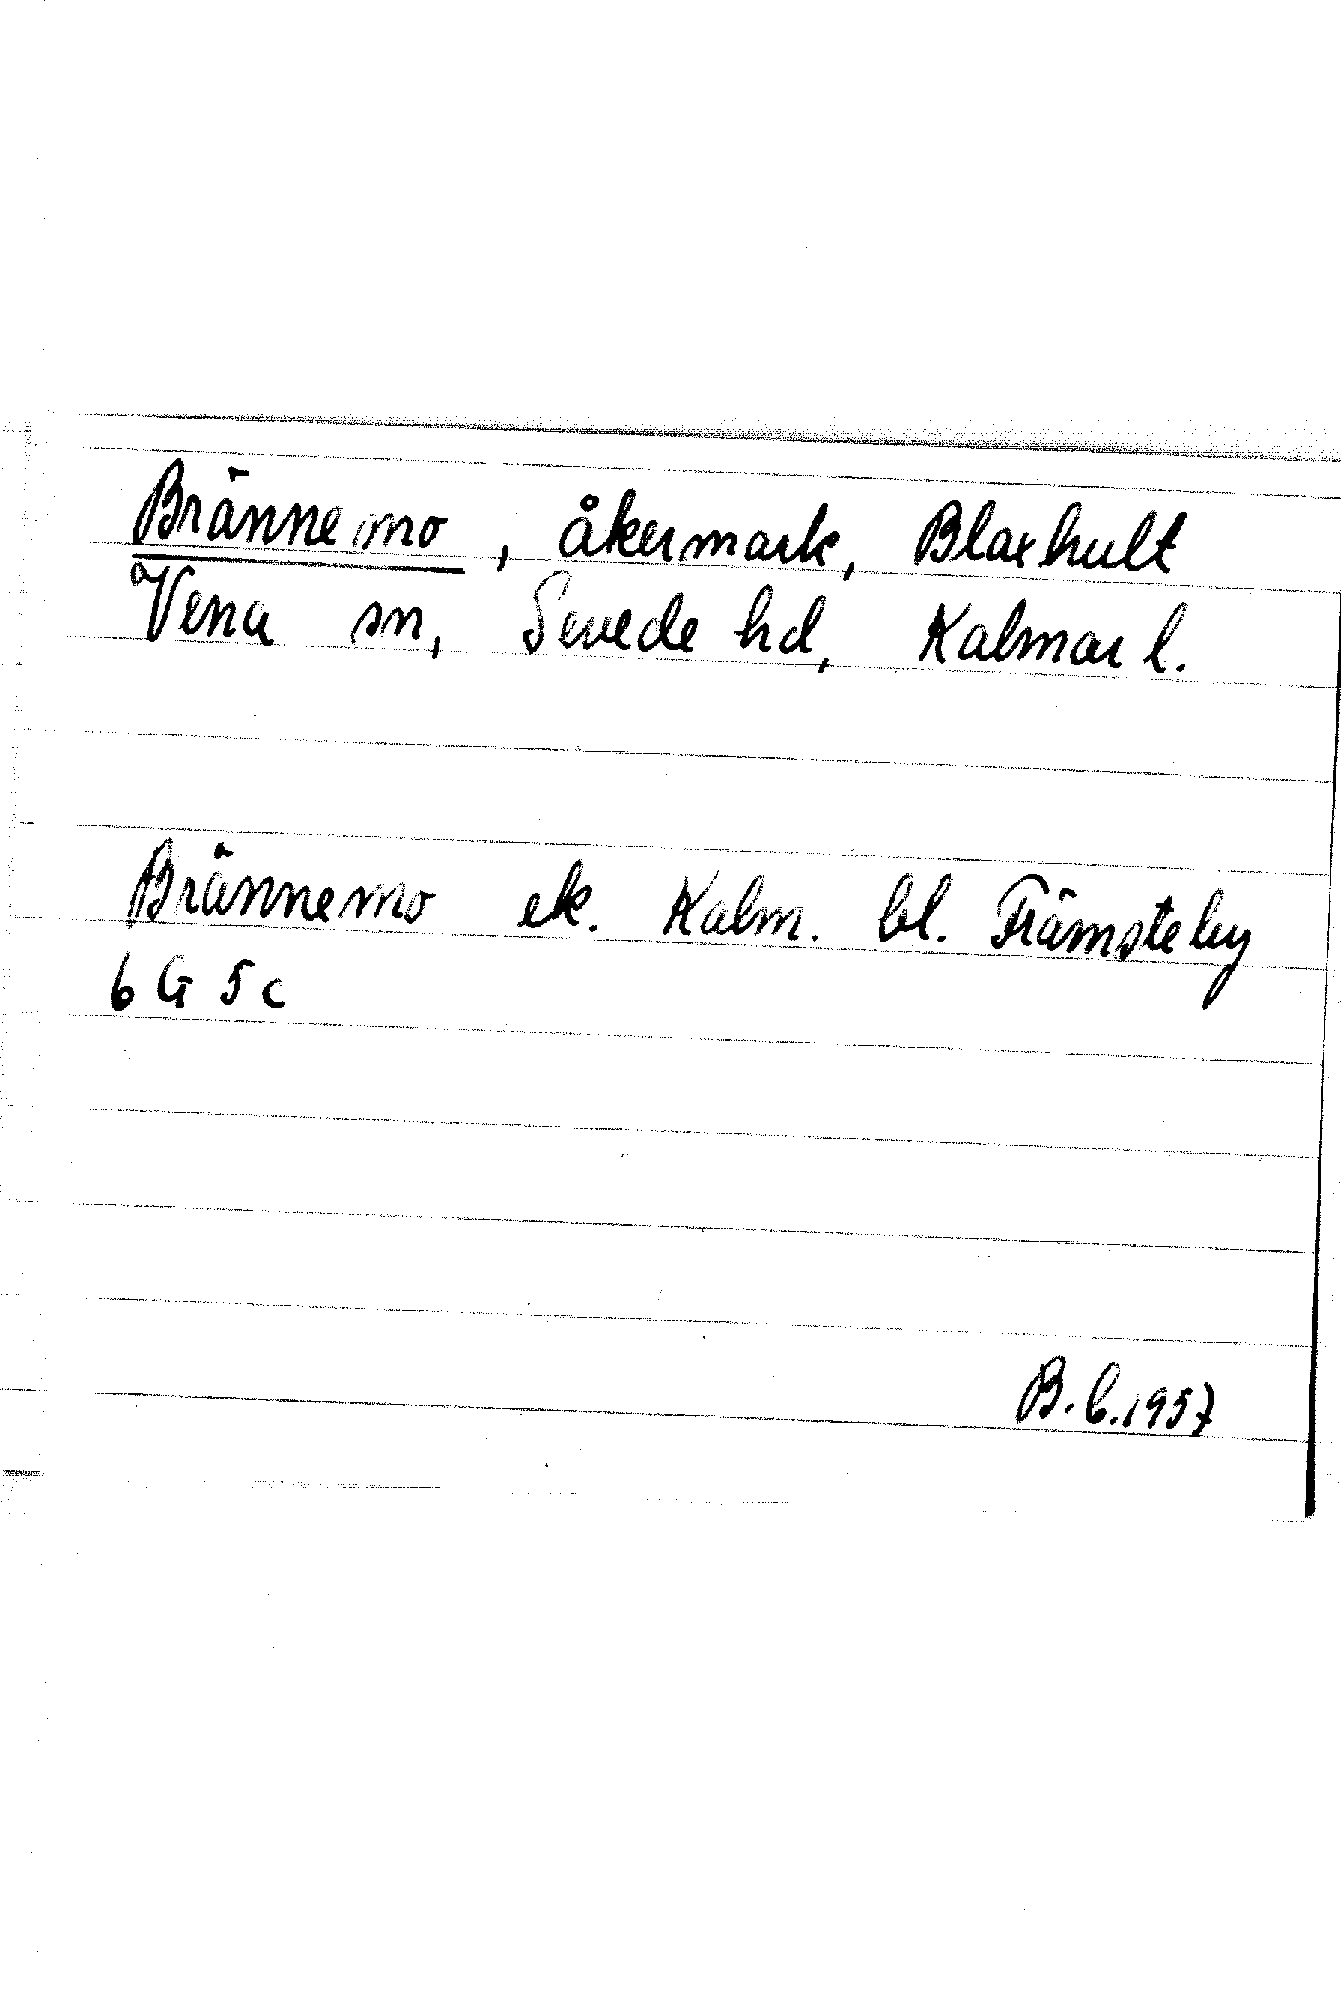 Brännemo, åkermark, Blaxhult
Vena sn, Sevede hd, Kalmar l.
Brännemo ek. Kalm. bl. Främsteby
6 G 5 c
B.b.1957